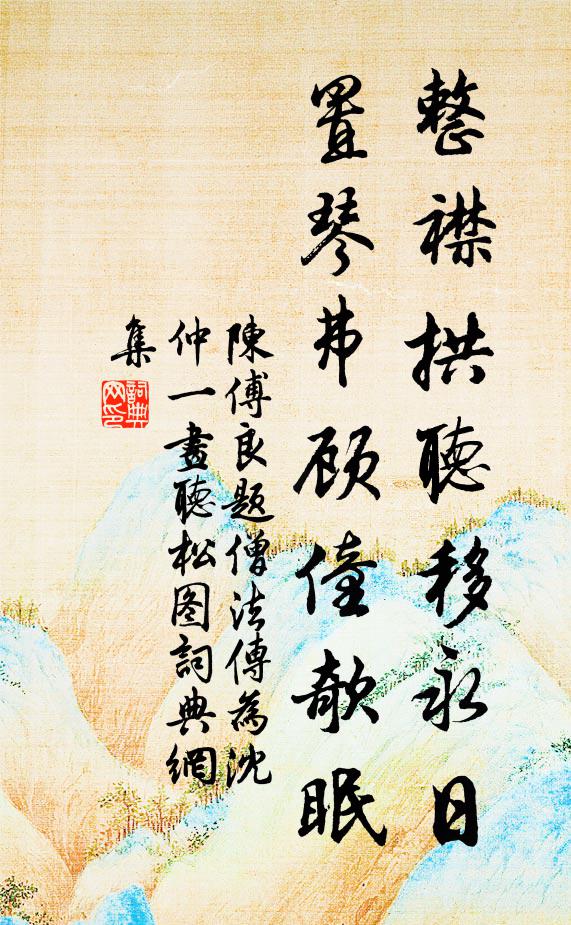 整襟拱聽移永日
置琴弗顧僮欹眠
陳傅良題僧法傳為沈
仲一畫聽松图詞典網
集
詞典网印